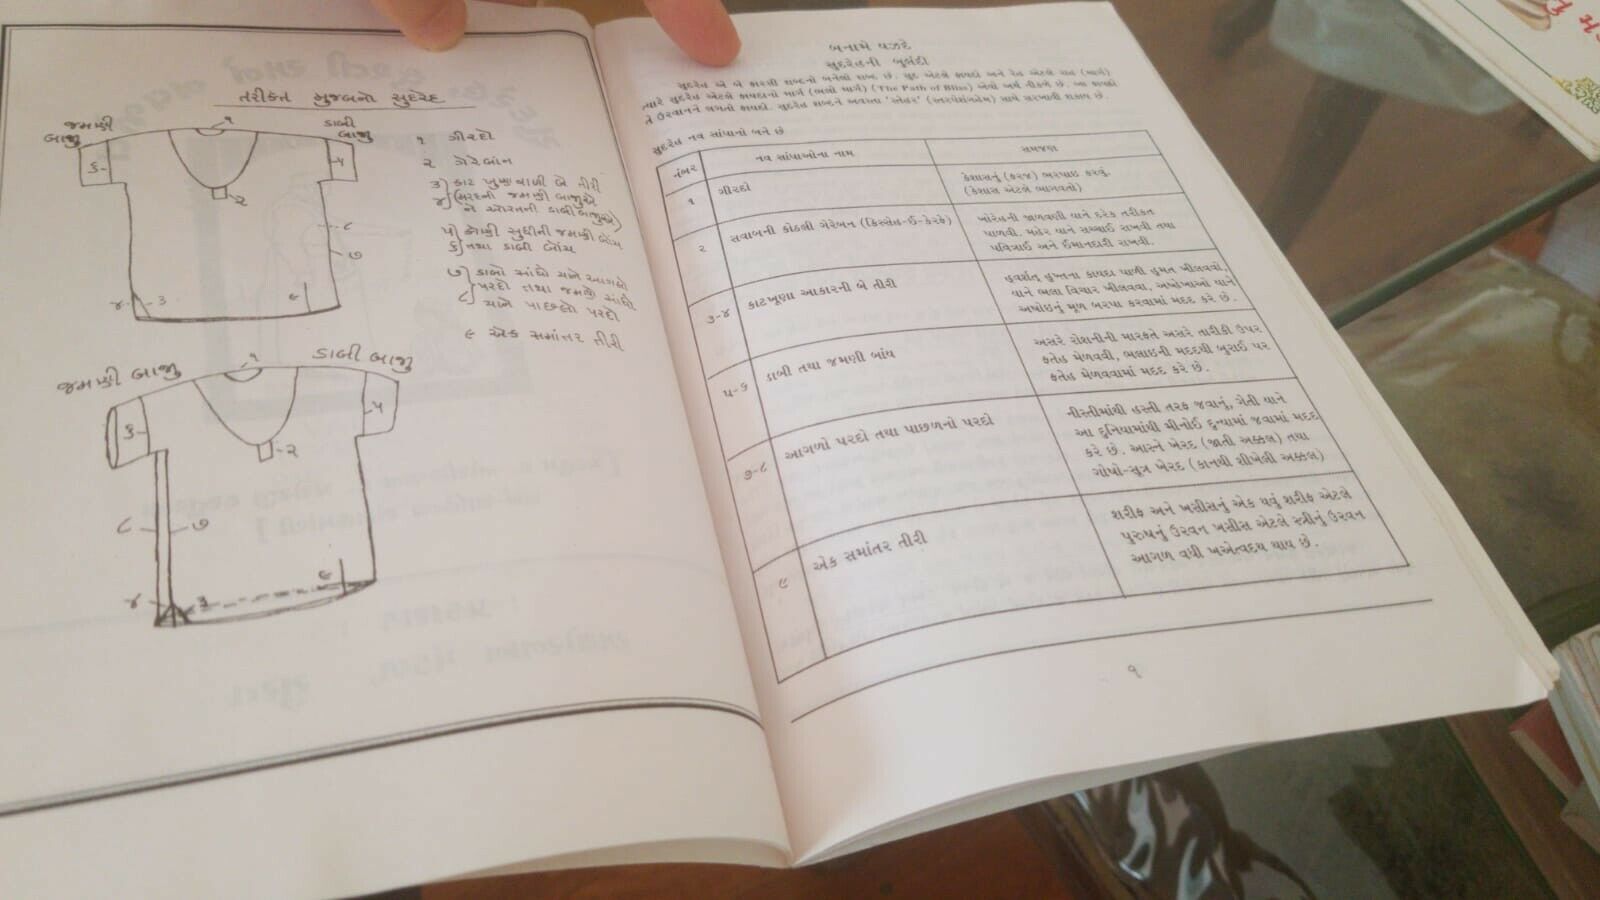 તરીકત મુજબનો સુદરેહ
જમણી બાજુ
ડાબી બાજુ
૧
૨
૩
૪
૫
૬
૭
૮
૯
૧ ગીરદો
૨ ગેરેબાન
૩) કાટ ખુણાવાળી બે તીરી
૪) (મરદની જમણી બાજુએ
ને ઓરતની ડાબી બાજુએ)
૫) કોણી સુધીની જમણી બાંય
૬) તથા ડાબી બાંય
૭) ડાબો સાંધો યાને આગલો
પરદો તથા જમણો સાંધો
૮) યાને પાછલો પરદો
૯ એક સમાંતર તીરી
જમણી બાજુ
ડાબી બાજુ
૧
૨
૩
૪
૫
૬
૭
૮
૯
બનામે યઝદે
સુદરેહની બુલંદી
સુદરેહ એ બે ફારસી શબ્દનો બનેલો શબ્દ છે. સુદ એટલે ફાયદો અને રેહ એટલે રાહ (માર્ગ)
ત્યારે સુદરેહ એટલે ફાયદાનો માર્ગ (ભલો માર્ગ) (The Path of Bliss) એવો અર્થ નીકળે છે. આ ફાયદો
તે ઉરવાનને લગતો ફાયદો. સુદરેહ શબ્દને અવસ્તા 'સ્તેહર' સાથે સરખાવી શકાય છે.
સુદરેહ નવ સાંધાનો બને છે
નંબર નવ સાંધાઓના નામ સમજણ
૧ ગીરદો કેશાસનું (કરજ) ભરપાઇ કરવું.
(કેશાસ એટલે ભાગવતો)
૨ સવાબની કોથલી ગેરેબાન (કિસ્સેહ-ઈ-કેરફે) ખોરેહની જાળવણી યાને દરેક તરીકત
પાળવી. મહેર યાને સચ્ચાઈ રાખવી તથા
પવિત્રાઈ અને ઈમાનદારી રાખવી.
૩-૪ કાટખૂણા આકારની બે તીરી હવર્શત હુખ્તના કાયદા પાળી હુમત ખીલવવો,
યાને ભલા વિચાર ખીલવવા. અખોખાઓ યાને
અખોઇનું મૂળ બરપા કરવામાં મદદ કરે છે.
૫-૬ ડાબી તથા જમણી બાંય અસરે રોશનીની મારફતે અસરે તારીકી ઉપર
ફતેહ મેળવવી, ભલાઇની મદદથી બુરાઈ પર
ફતેહ મેળવવામાં મદદ કરે છે.
૭-૮ આગળો પરદો તથા પાછળનો પરદો નીસ્તીમાંથી હસ્તી તરફ જવાનું, ગેતી યાને
આ દુનિયામાંથી મીનોઈ દુન્યામાં જવામાં મદદ
કરે છે. આસ્ને ખેરદ (જાતી અક્કલ) તથા
ગોષો-સુત્ર ખેરદ (કાનથી શીખેલી અક્કલ)
૯ એક સમાંતર તીરી શરીફ અને ખસીસનું એક થવું શરીફ એટલે
પુરુષનું ઉરવન ખસીસ એટલે સ્ત્રીનું ઉરવન
આગળ વધી ખએત્વદથ થાય છે.
૧